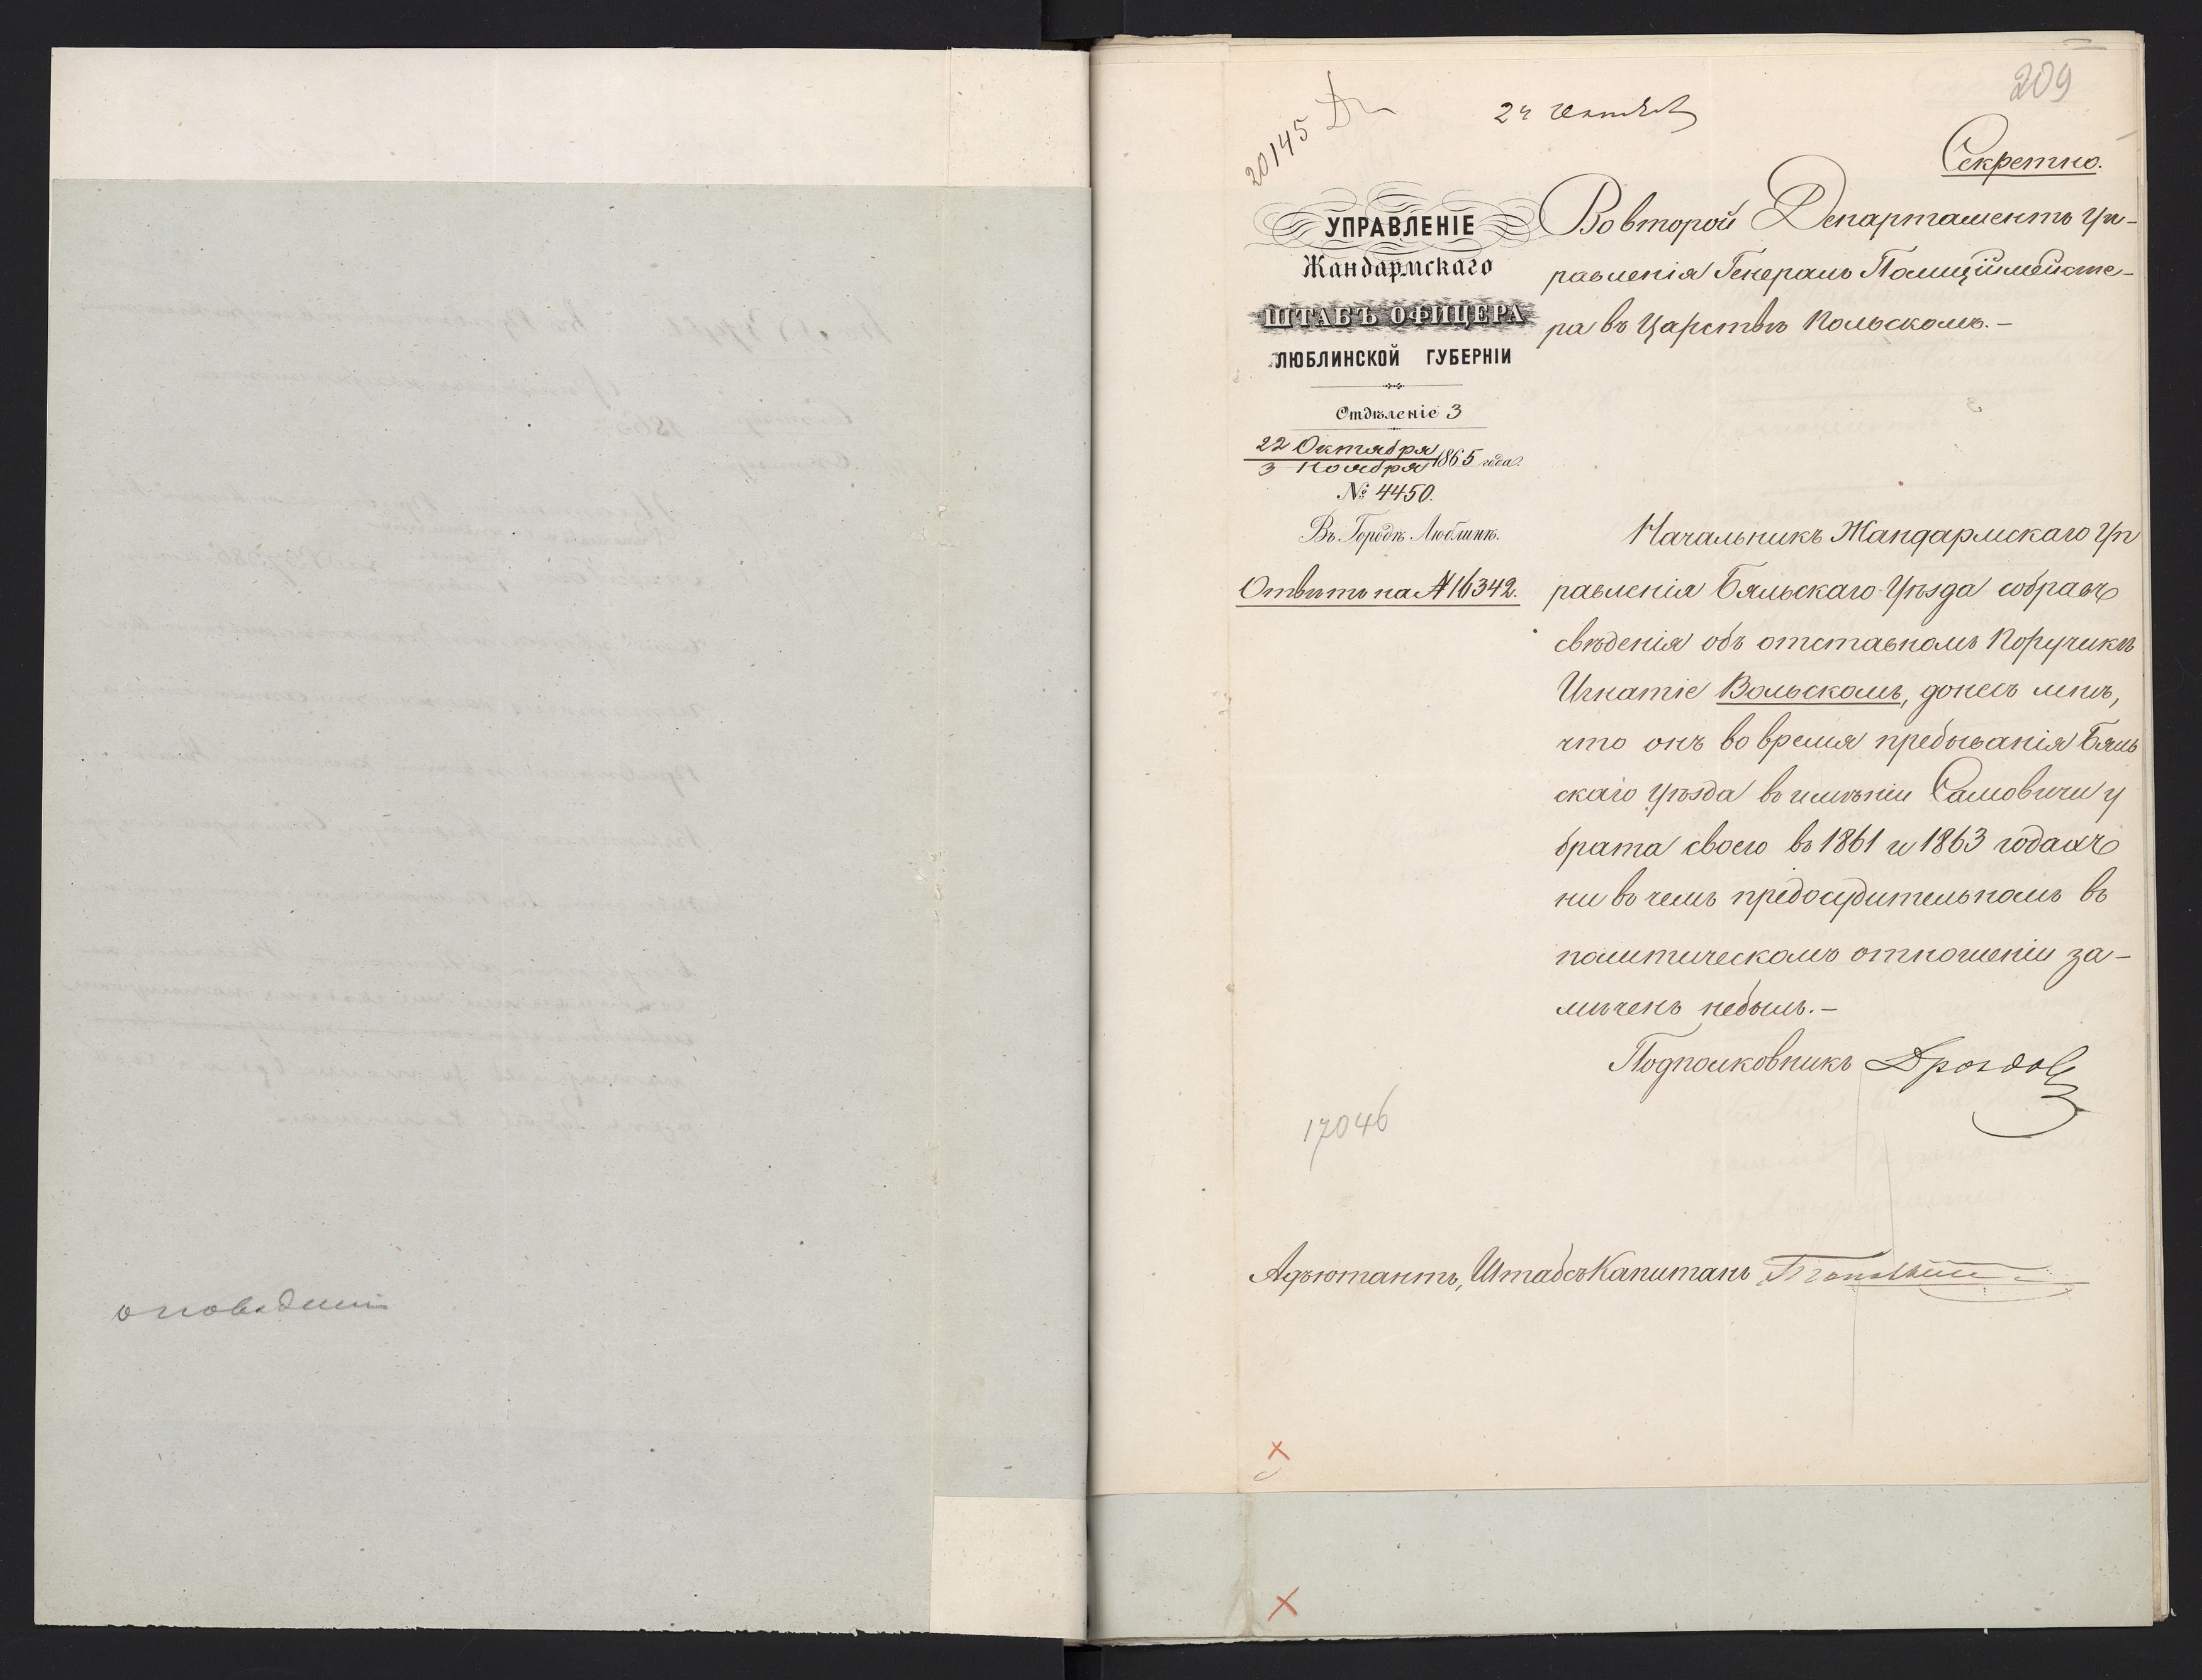 209
20145
24 Октября
Секретно.
УПРАВЛЕНІЕ
Жандармскаго
ШТАБЪ ОФИЦЕРА
ЛЮБЛИНСКОЙ ГУБЕРНІИ
Отдѣленіе 3
22 Октября
3 Ноября 1865 года.
№ 4450.
Въ Городѣ Люблинѣ.
Отвѣтъ на № 16342.
Во второй Департаментъ Уп-
равленія Генералъ Полиціймейсте-
ра въ Царствѣ Польскомъ.-
Начальникъ Жандармскаго Уп
равленія Бяльскаго Уѣзда собравъ
свѣденія объ отставномъ Поручикѣ
Игнатіе Вольскомъ, донесъ мнѣ,
что онъ во время пребыванія Бяль
скаго Уѣзда въ имѣніи Самовичи у
брата своего въ 1861 и 1863 годахъ
ни въ чемъ предосудительномъ въ
политическомъ отношеніи за-
мѣченъ небылъ.-
Подполковникъ Дроздов
17046
Адъютантъ, Штабсъ Капитанъ